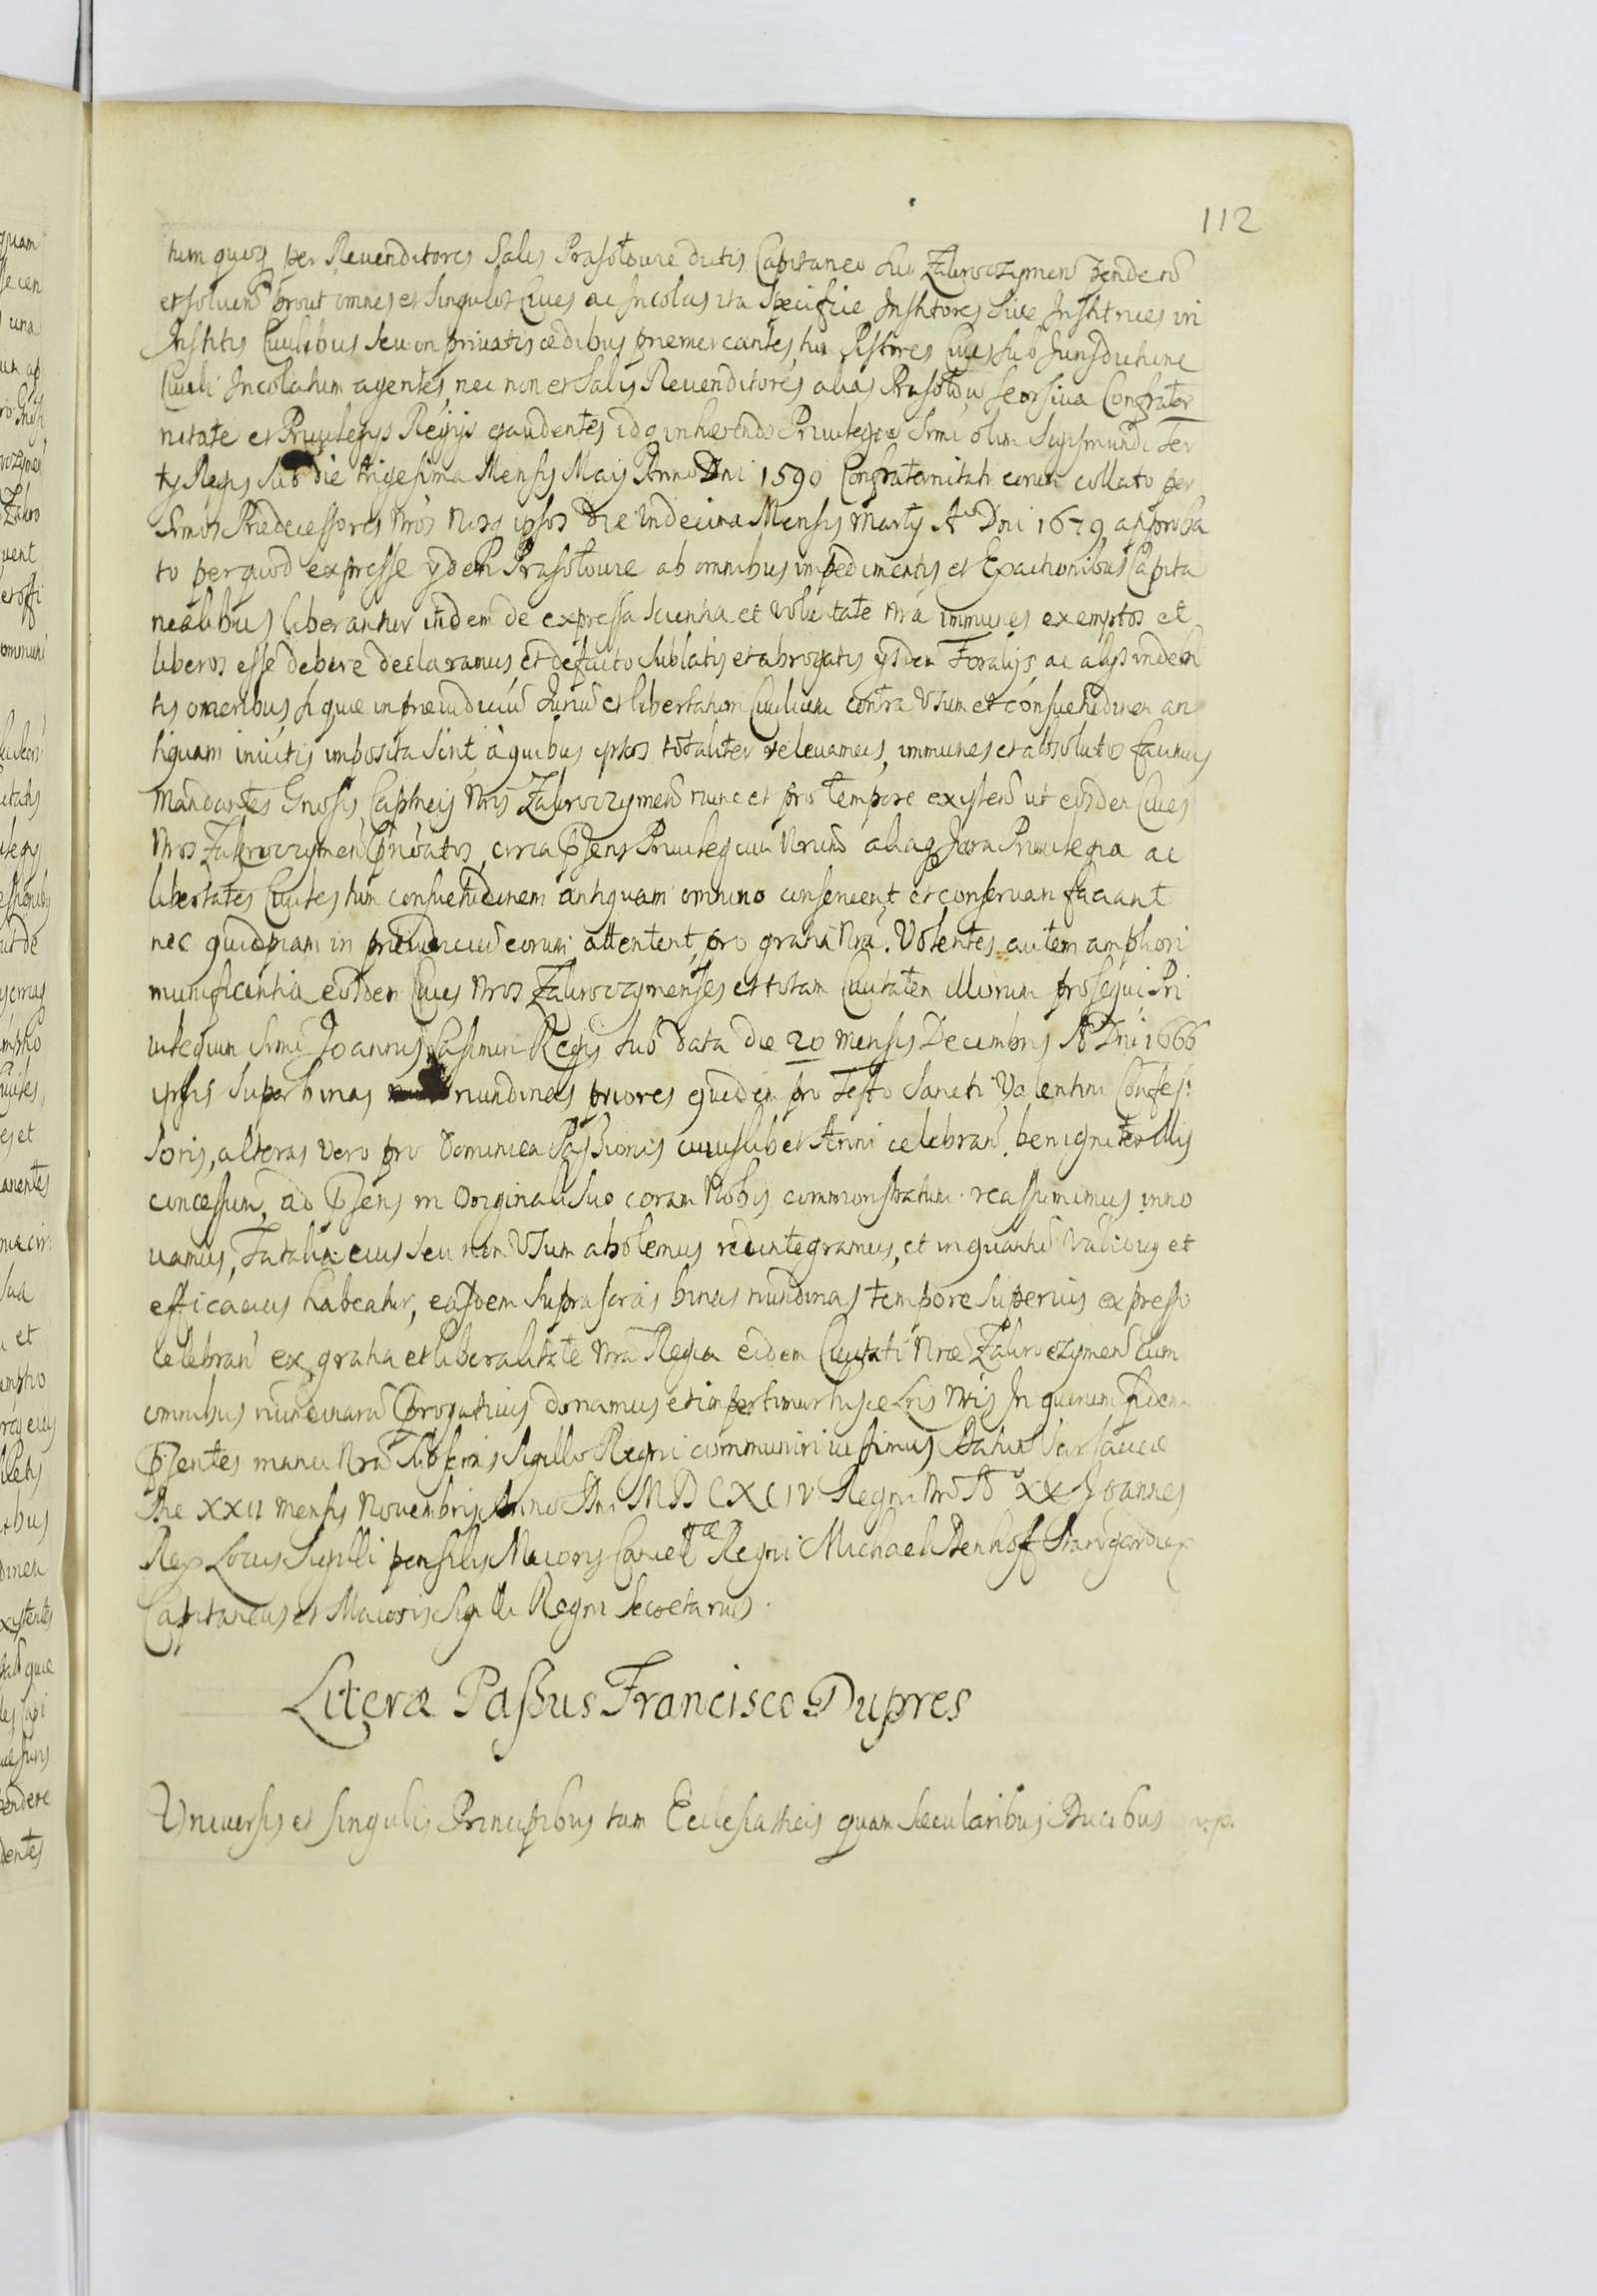 112
tum quoq per Reuenditores Salis Prasołowie dictis Capitaneo suo Zakroczymen pendend
et soluend prout omnes et singulos Ciues ac Incolas ita specifice Institores siue Institrices in
Institis Ciuilibus seu in priuatis ædibus præmercantes, tum Pistores Ciues sub Jurisdictione
Ciuili Incolatum agentes, nec non et Salis Reuenditores alias Prasołow seorsiua Confrater
nitate et Priuilegys Regys gaudentes idq inhærendo Priuilegio Srmi olim Sigismundi Ter
ty Regis sub die trigesima Mensis Maij Anno Dni 1590 Confraternitati eorum collato per
Srmos Prædecessores nros nosq ipsos die undecima Mensis Marty Ao Dni 1679 approba
to per quod expresse ydem Prasołowie ab omnibus impedimentis et Exactionibus Capita
nealibus liberantur itidem de expressa scientia et voluntate nra immunes exemptos et
liberos esse debere declaramus, et de facto sublatis et abrogatis ysdem Foralys, ac alys indebi
tis oneribus si quæ in præiudiciu Juriu et libertatum Ciuilium contra Usum et consuetudinem an
tiquam inuitis imposita sint, à quibus ipsos totaliter releuamus, immunes et absolutos facimus
Mandantes Gnosis Captneis Nris Zakroczymen nunc et pro tempore existen ut eosdem Ciues
Nros Zakroczymen Pnoatos, circa Psens Priuilegium Nrum aliaq Jura Priuilegia ac
libertates Ciuiles tum consuetudinem antiquam omnino conseruent et conseruari faciant
nec quidpiam in præiudiciu eorum attentent, pro gratia Nra. Volentes autem ampliori
munificentia eosdem Ciues Nros Zakroczymenses et totam Ciuitatem illorum prosequi Pri
uilegium Srmi Joannis Casimiri Regis sub data die 20 mensis Decembris Ao Dni 1666
ipsis super binas nundinas priores quidem pro Festo Sancti Valentini Confes
soris, alteras vero pro Dominica Passionis cuiuslibet Anni celebrand. benigniter illis
concessum, ad Psens in originali suo coram Nobis commonstratum reassumimus inno
uamus, Fatalia eius seu non Usum abolemus redintegramus, et in quantu validius et
efficacius habeatur, easdem suprascras binas nundinas tempore superius expresso
celebrand ex gratia et liberalitate nra Regia eidem Ciuitati Nræ Zakroczymen cum
omnibus nundinaru Prrogatiuis donamus et impertimur hisce Lris Nris In quorum fidem
Psentes manu Nra Subscras Sigillo Regni communiri iussimus Datum Varsauiæ
Die XXII mensis Novembris Anno Dni MDCXCIV Regni Nri Ao XX Joannes
Rex Locus Sigilli pensilis Maioris Cancelæ Regni Michael Denhoff Stanigardiæ
Capitaneus et Maioris Sigilli Regni Secretarius.
Literæ Passus Francisco Dupres
Universis et singulis Principibus tam Ecclesiasticis quam Sæcularibus Ducibus